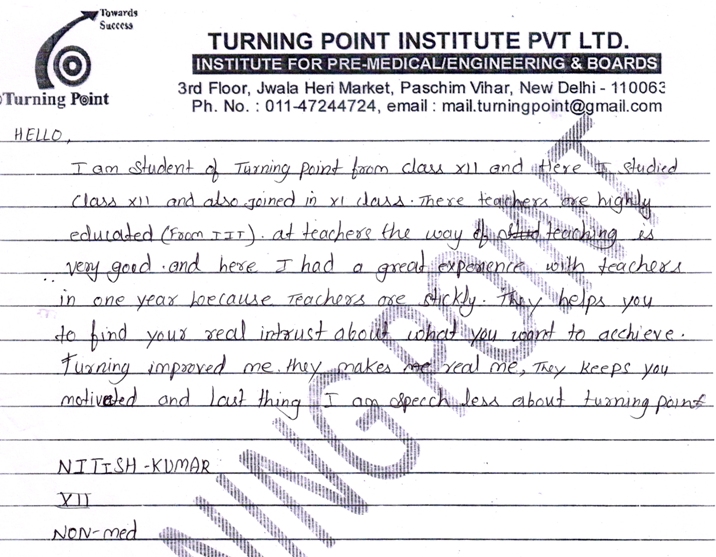 Towards
Success
Turning Point
TURNING POINT INSTITUTE PVT LTD.
INSTITUTE FOR PRE-MEDICAL/ENGINEERING & BOARDS
3rd Floor, Jwala Heri Market, Paschim Vihar, New Delhi - 110063
Ph. No. : 011-47244724, email : mail.turningpoint@gmail.com
HELLO,
I am student of Turning point from class XII and Here I studied
class XII and also joined in XI class. There teachers are highly
educated (From IIT). at teachers the way of teaching is
very good. and here I had a great experience with teachers
in one year because Teachers are stickly. They helps you
to find your real intrust about what you want to acchieve.
Turning improved me. they makes me real me, They keeps you
motivated and last thing I am speech less about turning point
NITISH-KUMAR
XII
NON-med
TURNING POINT